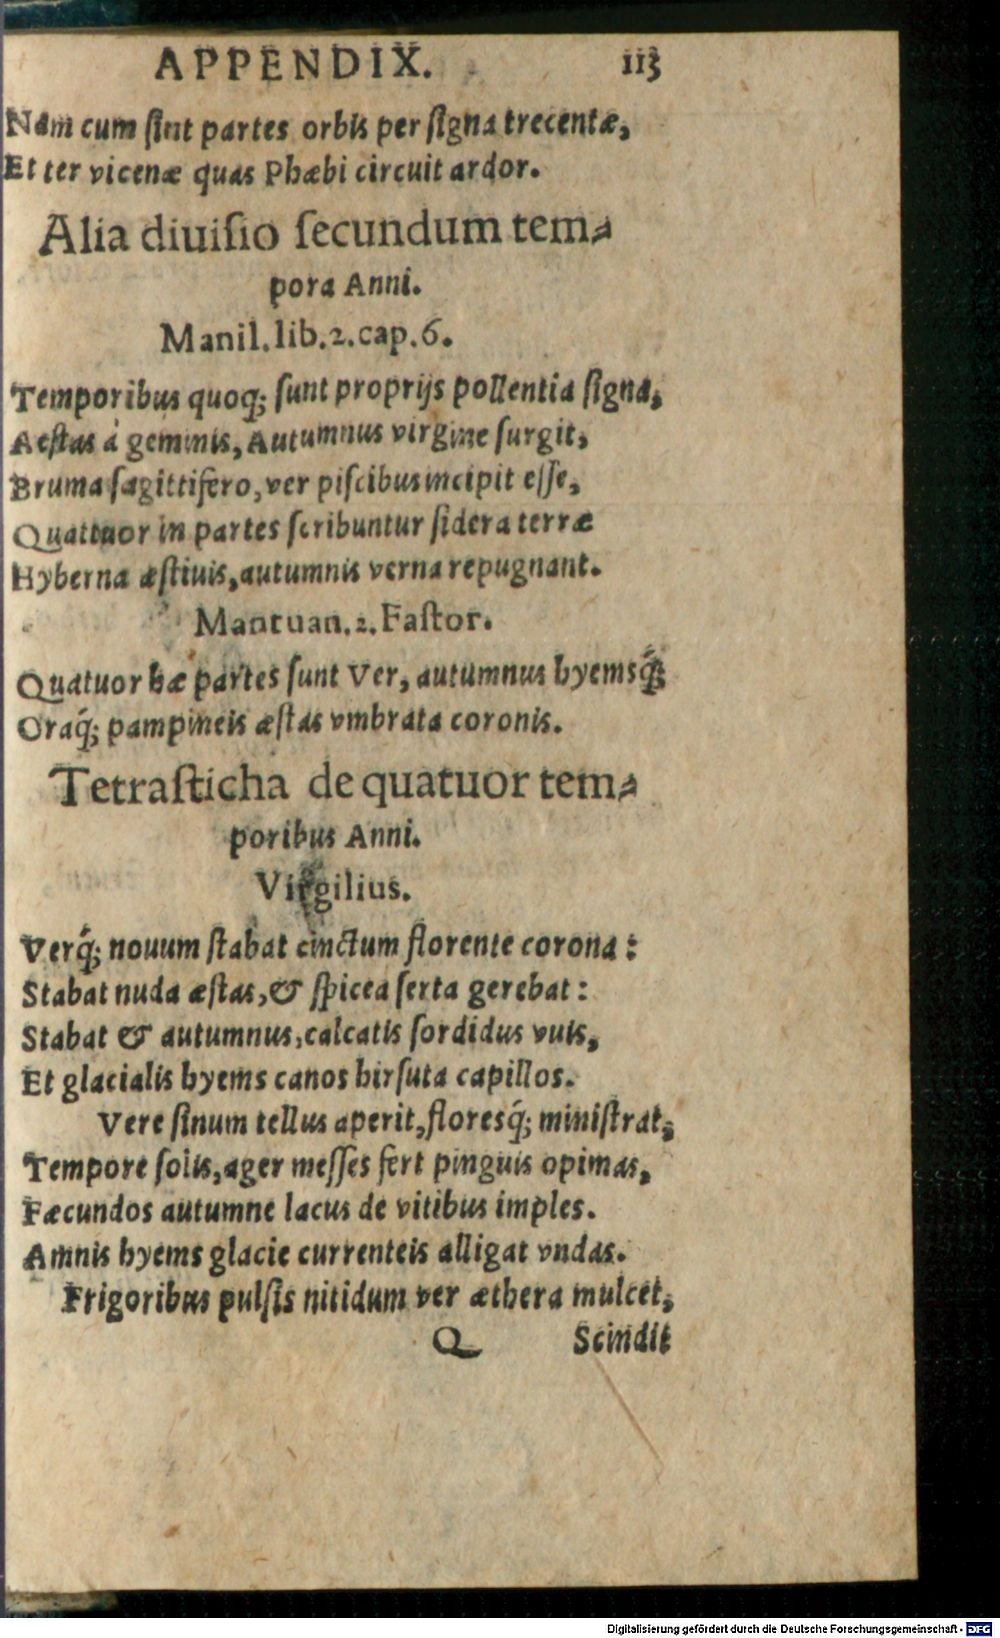 APPENDIX. 113
Nam cum ſint partes orbis per ſigna trecentæ,
Et ter vicenæ quas Phæbi circuit ardor.
Alia diuiſio ſecundum tem-
pora Anni.
Manil.lib.2.cap.6.
Temporibus quoq; ſunt proprijs pollentia ſigna,
Aeſtas à geminis, Autumnus virgine ſurgit,
Bruma ſagittifero, ver piſcibus incipit eſſe,
Quattuor in partes ſcribuntur ſidera terræ
Hyberna æſtiuis, autumnis verna repugnant.
Mantuan.2.Faſtor.
Quatuor hæ partes ſunt Ver, autumnus hyemsq́;
Oraq́; pampineis æſtas vmbrata coronis.
Tetraſticha de quatuor tem-
poribus Anni.
Virgilius.
Verq́; nouum ſtabat cinctum florente corona:
Stabat nuda æſtas, & ſpicea ſerta gerebat:
Stabat & autumnus, calcatis ſordidus vuis,
Et glacialis hyems canos hirſuta capillos.
Vere ſinum tellus aperit, floresq́; miniſtrat,
Tempore ſolis, ager meſſes fert pinguis opimas,
Fæcundos autumne lacus de vitibus imples.
Amnis hyems glacie currenteis alligat vndas.
Frigoribus pulſis nitidum ver æthera mulcet,
Q Scindit
Digitalisierung gefördert durch die Deutsche Forschungsgemeinschaft - DFG